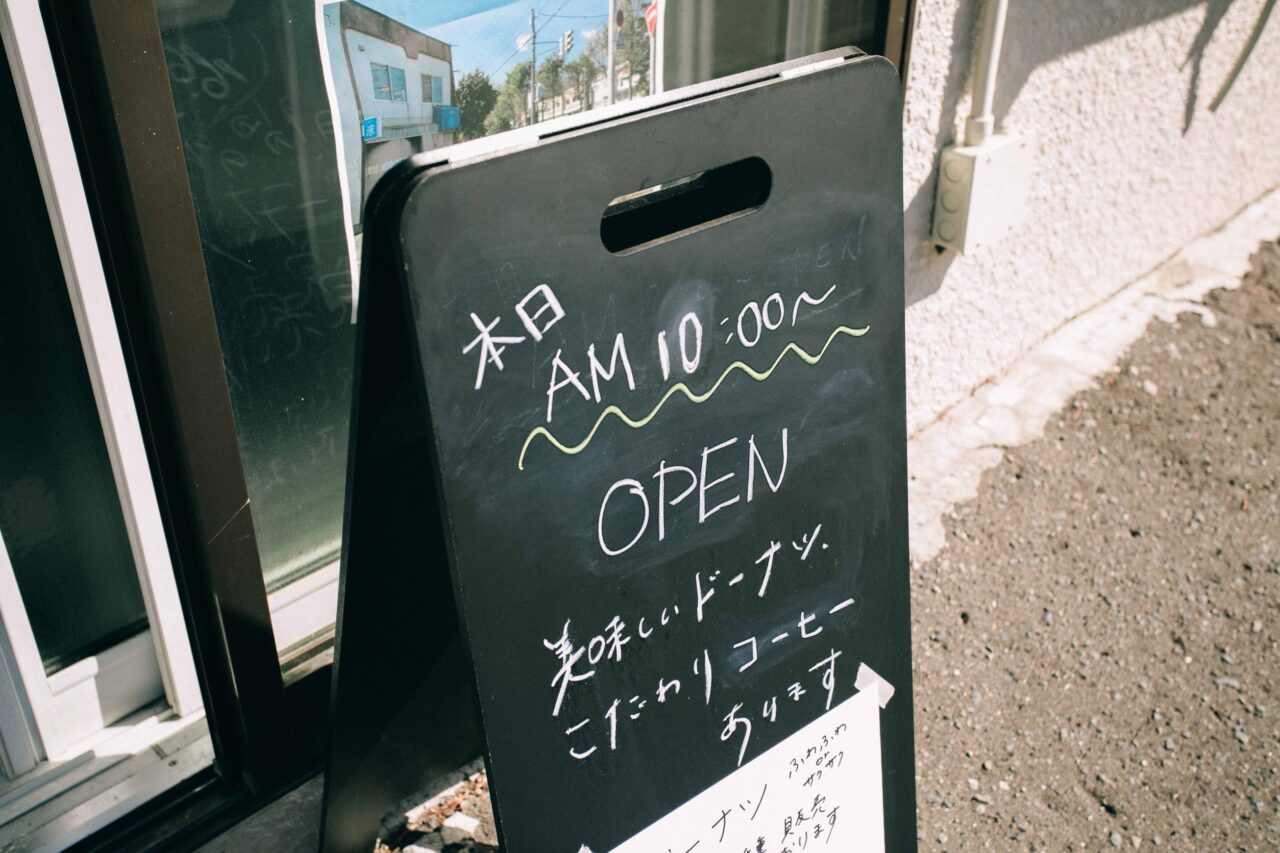 本日
AM 10:00〜
OPEN
美味しいドーナツ、
こだわりコーヒー
あります
ふわふわ
or
サクサク
ーナツ
販売
ります